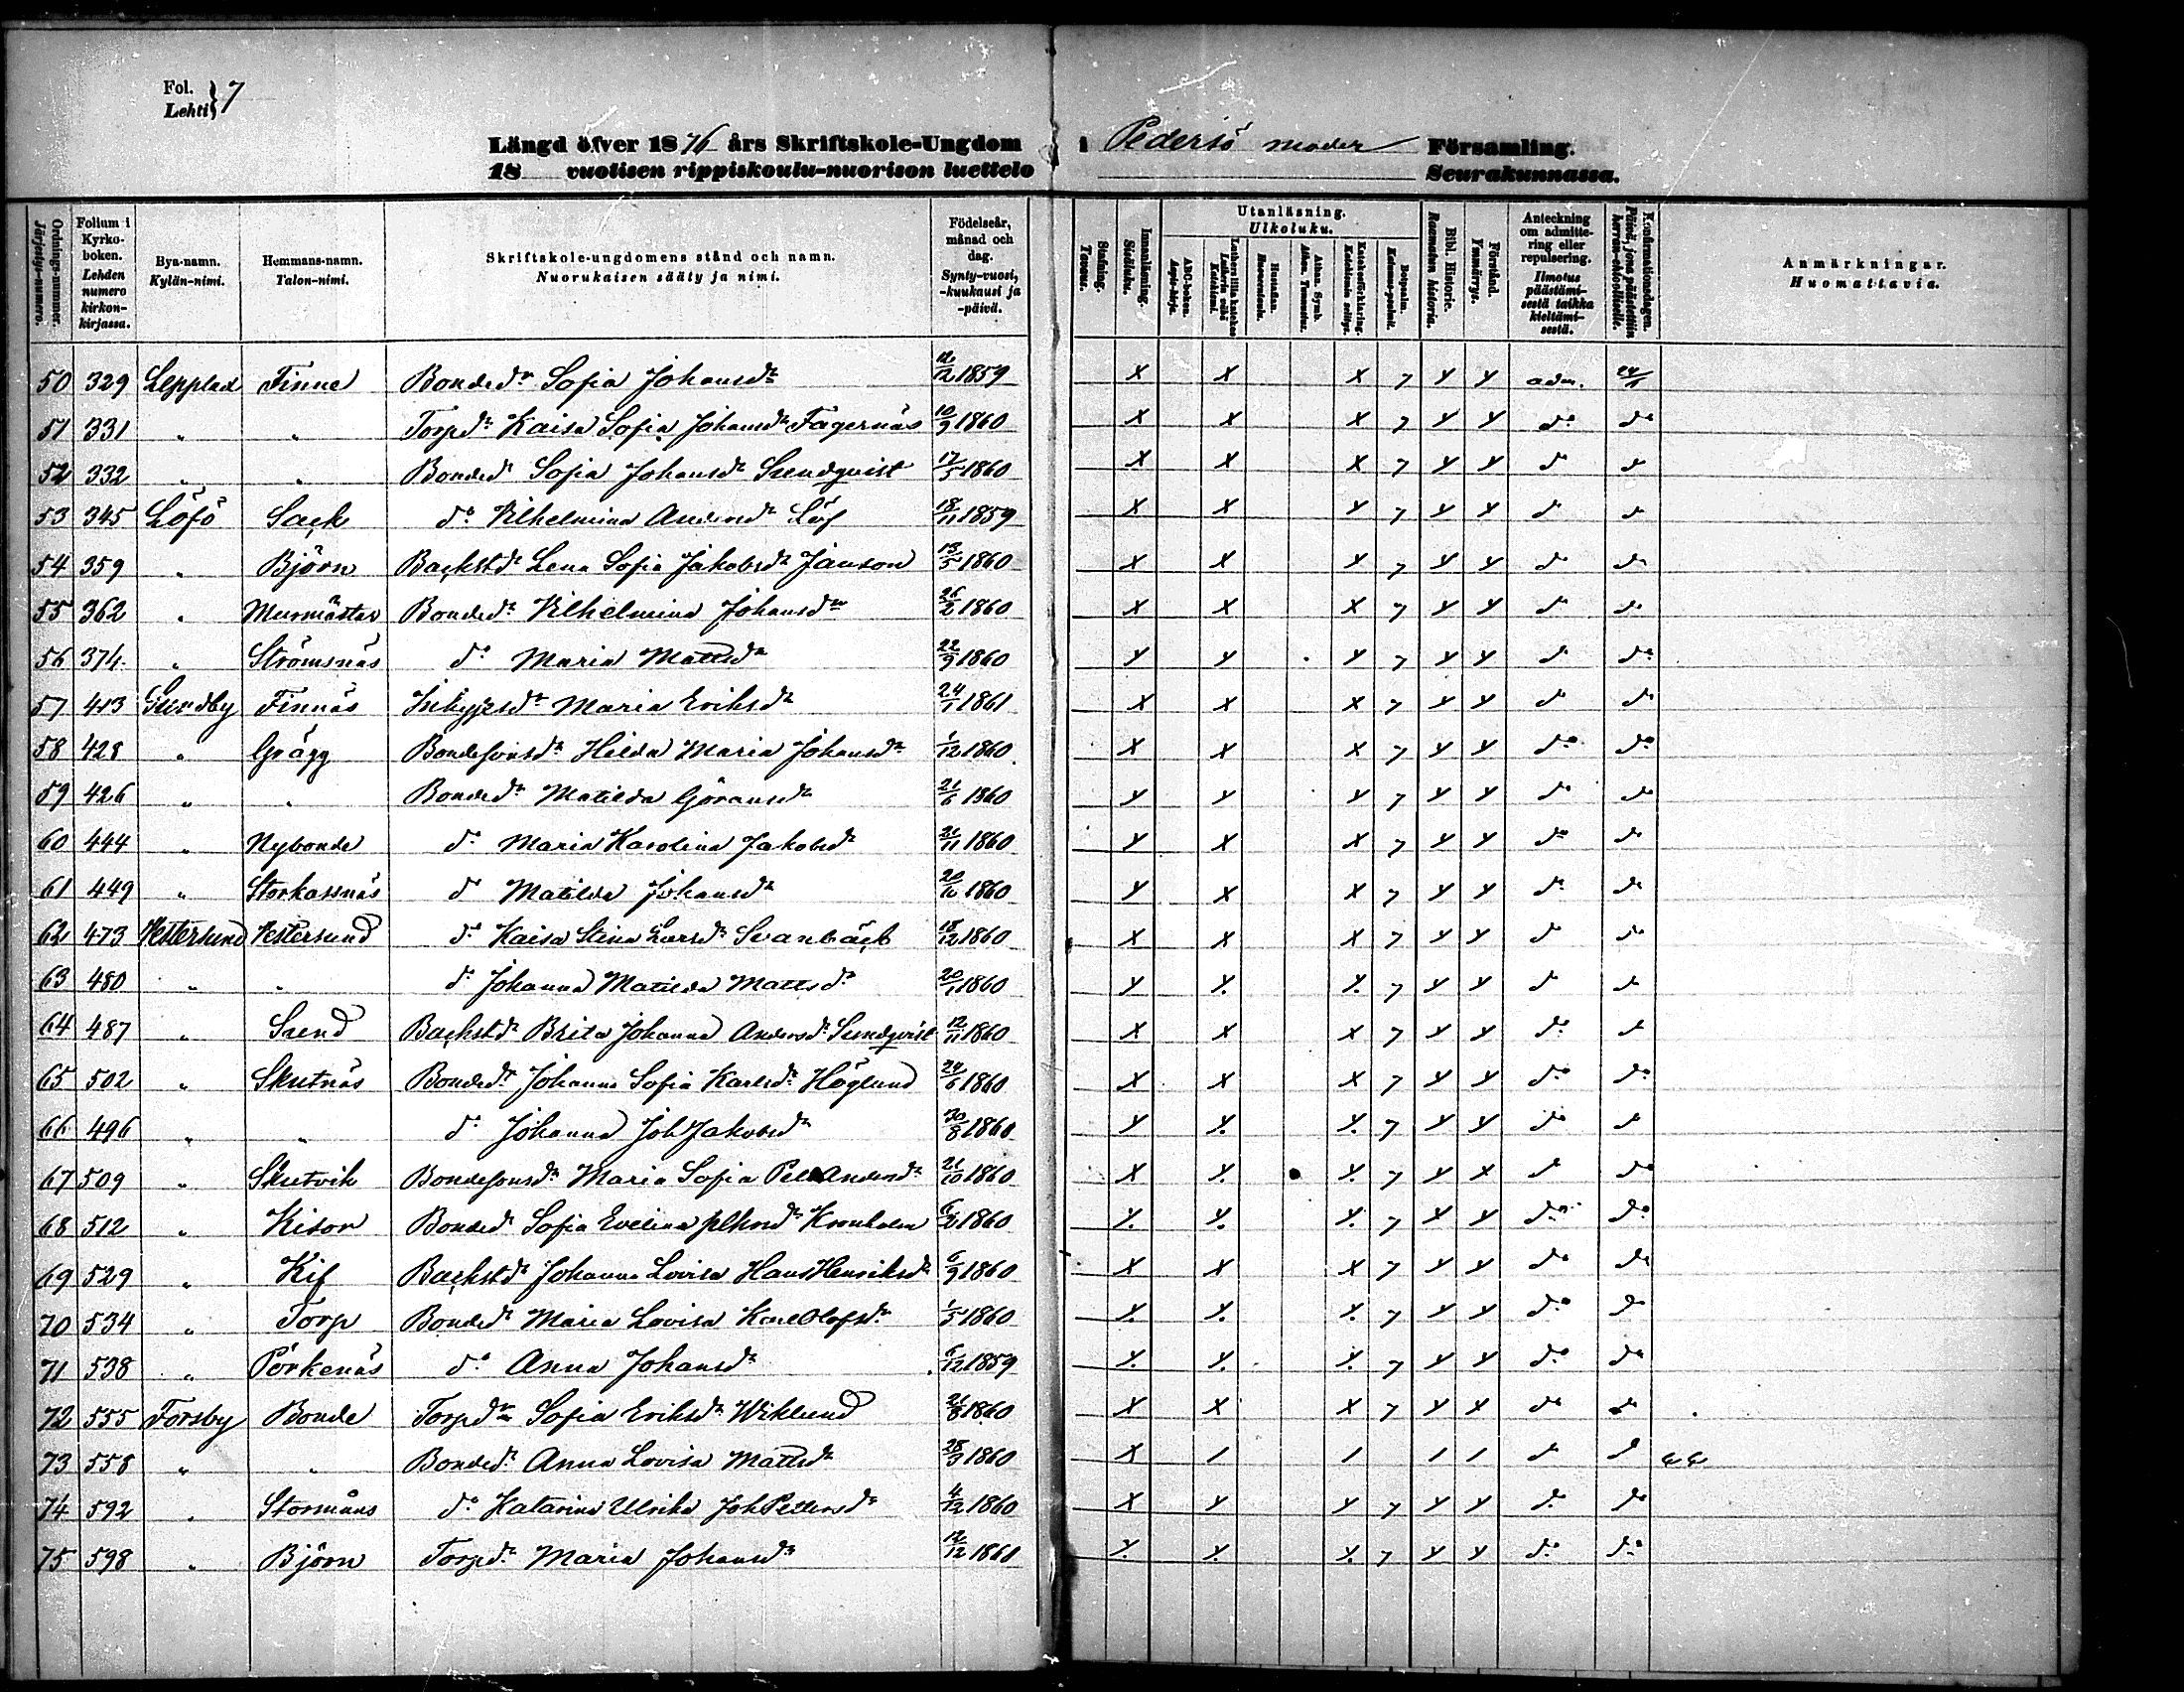 Fol. } 7
Lehti
Längd öfver 1876 års Skriftskole-Ungdom i Pedersö moder Församling.
18 vuotisen rippiskoulu-nuorison luettelo Seurakunnassa.
Ordnings-nummer. Järjestys-numero.
Folium i Kyrko-boken. Lehden numero kirkon-kirjassa.
Bya-namn. Kylän-nimi.
Hemmans-namn. Talon-nimi.
Skriftskole-ungdomens stånd och namn. Nuorukaisen sääty ja nimi.
Födelseår, månad och dag. Synty-vuosi, -kuukausi ja -päivä.
Stafning. Tavaus.
Innanläsning. Sisäluku.
Utanläsning. Ulkoluku.
ABC-boken. Aapis-kirja.
Lutheri lilla katekes Lutherin vähä Katekismi.
Hustaflan. Huoneentaulu.
Athan. Symb. Athan. Tunnustus.
Katekesförklaring. Katekismin selitys.
Botpsalm. Katumus-psalmi.
Bibl. Historie. Raamatun historia.
Förstånd. Ymmärrys.
Anteckning om admittering eller repulsering. Ilmotus päästämisestä taikka kieltämisestä.
Konfirmationsdagen. Päivä, jona päästettiin herran-ehtoolliselle.
Anmärkningar. Huomattavia.
50 329 Lepplad Finne Bonded:r Sofia Johansd:r 12/12 1859 x x x 7 y y adm. 24/6
51 331 " " Torpd:r Kaisa Sofia Johansd:r Fagernäs 10/9 1860 x x x 7 y y d:o d:o
52 332 " " Bonded:r Sofia Johansd:r Sundqvist 17/5 1860 x x x 7 y y d:o d:o
53 345 Löfö Sack d:o Vilhelmina Andersd:r Löf 18/11 1859 x x y 7 y y d:o d:o
54 359 " Björn Backstd:r Lena Sofia Jakobsd:r Janson 13/5 1860 x x y 7 y y d:o d:o
55 362 " Murmästar Bonded:r Vilhelmina Johansd:r 26/2 1860 x x x 7 y y d:o d:o
56 374 " Strömsnäs d:o Maria Mattsd:r 22/9 1860 y y y 7 y y d:o d:o
57 413 Sundby Finnäs Inhysesd:r Maria Eriksd:r 24/1 1861 x x x 7 y y d:o d:o
58 428 " Grägg Bondesonsd:r Hilda Maria Johansd:r 1/12 1860 x x x 7 y y d:o d:o
59 426 " " Bonded:r Matilda Göransd:r 21/6 1860 y y y 7 y y d:o d:o
60 444 " Nybonde d:o Maria Karolina Jakobsd:r 21/11 1860 y x x 7 y y d:o d:o
61 449 " Storkassnäs d:o Matilda Johansd:r 20/10 1860 y x x 7 y y d:o d:o
62 473 Vestersund Vestersund d:o Kaisa Stina Larsd:r Svanbäck 18/12 1860 x x x 7 y y d:o d:o
63 480 " " d:o Johanna Matilda Mattsd:r 20/1 1860 y y y 7 y y d:o d:o
64 487 " Sund Backstd:r Brita Johanna Andersd:r Sundqvist 12/11 1860 x x x 7 y y d:o d:o
65 502 " Skutnäs Bonded:r Johanna Sofia Karlsd:r Höglund 24/6 1860 x x x 7 y y d:o d:o
66 496 " " d:o Johanna Joh Jakobsd:r 30/8 1860 y y y 7 y y d:o d:o
67 509 " Skutvik Bondesonsd:r Maria Sofia Pell Andersd:r 21/10 1860 x y y 7 y x d:o d:o
68 512 " Kisor Bonded:r Sofia Evelina Kronholm 6/2 1860 y y y 7 y y d:o d:o
69 529 " Kif Backstd:r Johanna Lovisa Hans Henriksd:r 6/9 1860 x x x 7 y y d:o d:o
70 534 " Torp Bonded:r Maria Lovisa Karl Olofsd:r 1/5 1860 y y y 7 y y d:o d:o
71 538 " Pörkenäs d:o Anna Johansd:r 6/12 1859 y y y 7 y y d:o d:o
72 555 Forsby Bonde Torpd:r Sofia Eriksd:r Wiklund 21/8 1860 x x x 7 y y d:o d:o
73 558 " " Bonded:r Anna Lovisa Mattsd:r 28/3 1860 x / / / / d:o d:o
74 592 " Stormåns d:o Katarina Ulrika Joh Pettersd:r 4/12 1860 x y y 7 y y d:o d:o
75 598 " Björn Torpd:r Maria Johansd:r 12/12 1860 y y y 7 y y d:o d:o